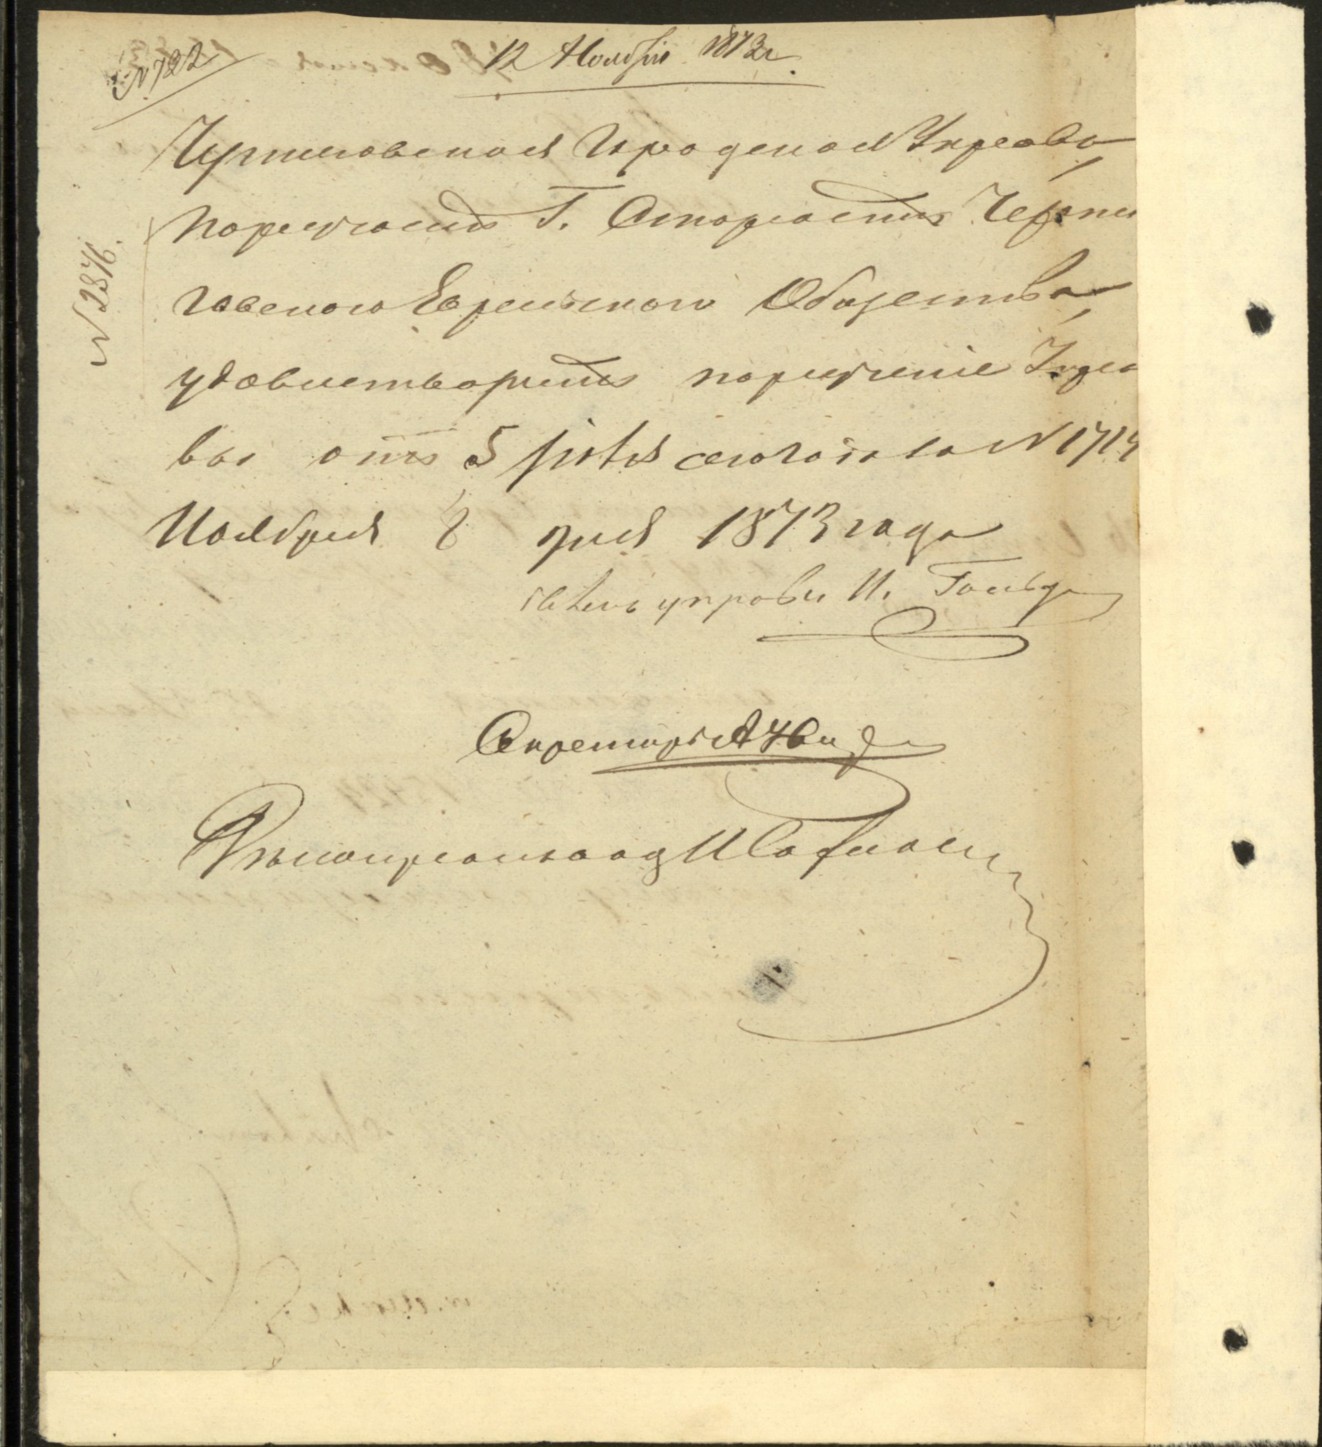 № 722
12 Ноября 1873 г.
Черниговская Городская Управа
поручаетъ Г. Старостѣ Черни
говскаго Еврейскаго Общества
№ 2876.
удовлетворить порученіе Упра
вы отъ 5 Іюля сего года за № 1714
Ноября 8 дня 1873 года
Членъ управы И.
Секретарь